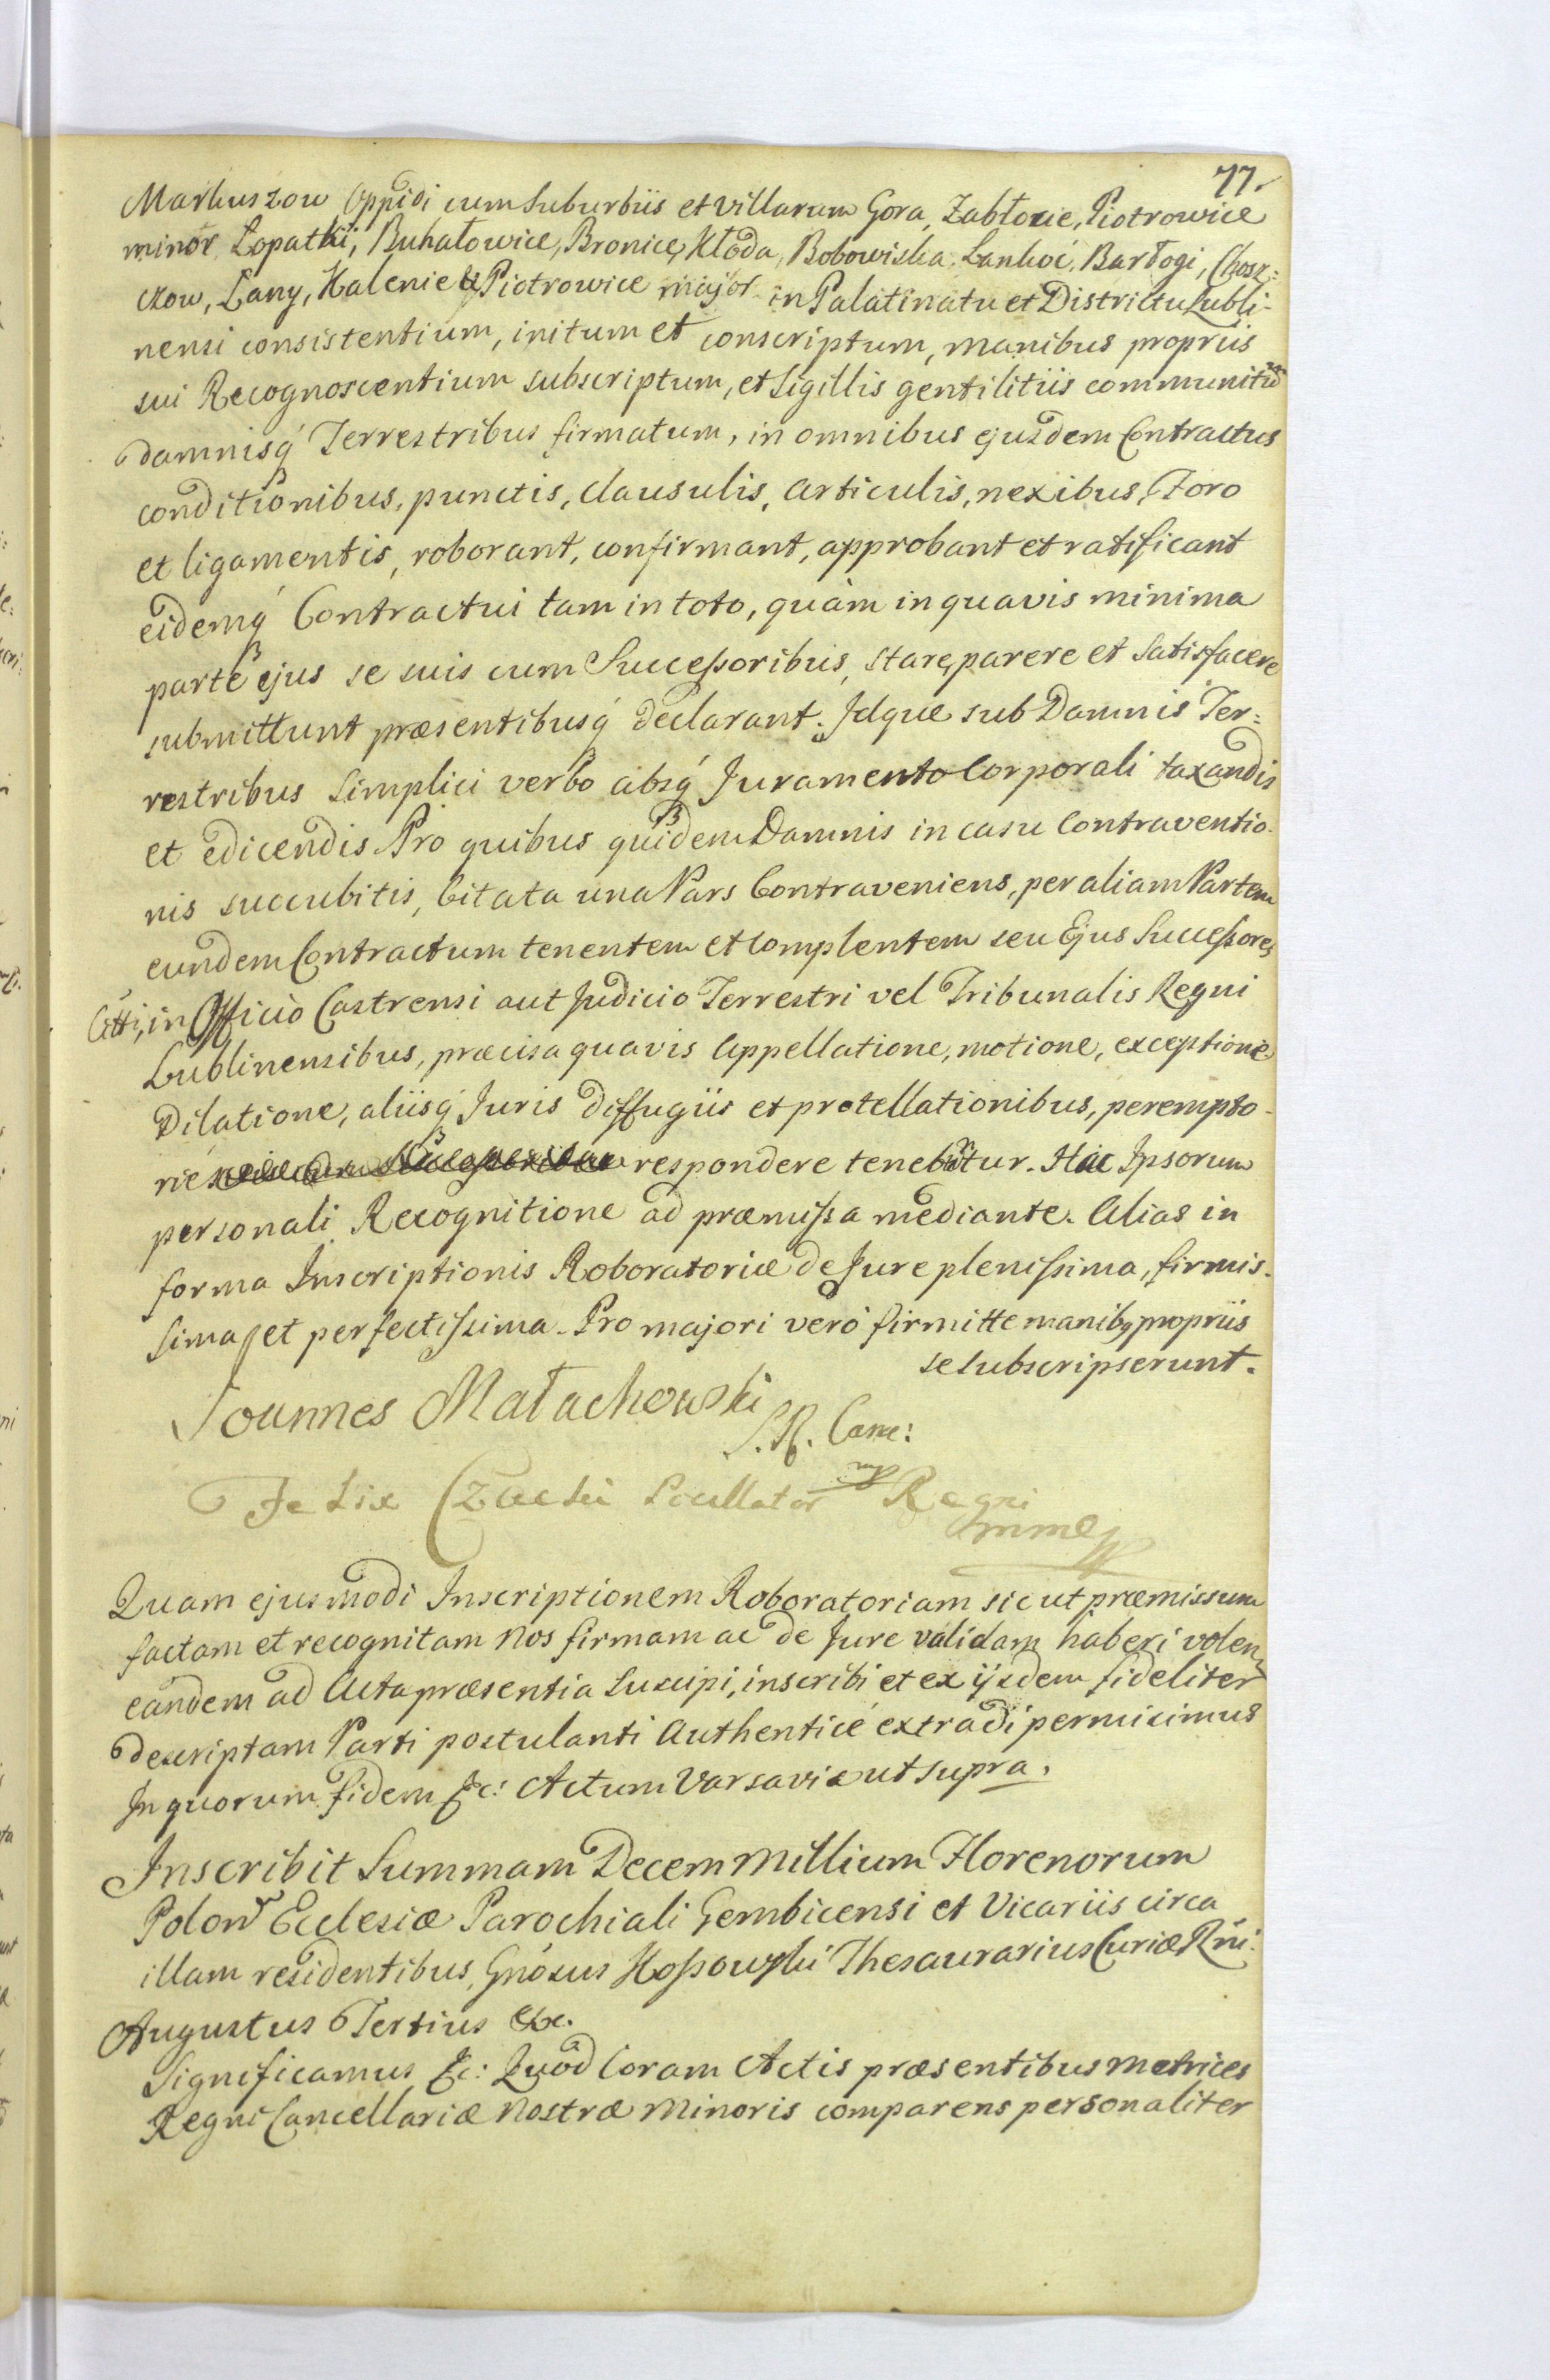 77.
Markuszow Oppidi cum Suburbiis et Villarum Gora, Zabłocie, Piotrowice
minor, Łopatki, Buhałowice, Bronice, Kłoda, Bobowiska, Łankoć, Barłogi, Chosz:
czow, Łany, Kalenie & Piotrowice major in Palatinatu et Districtu Lubli-
nensi consistentium, initum et conscriptum, manibus propriis
sui Recognoscentium subscriptum, et Sigillis gentilitiis communitũ
damnisq́ Terrestribus firmatum, in omnibus ejusdem Contractus
conditionibus, punctis, clausulis, articulis, nexibus, Foro
et ligamentis, roborant, confirmant, approbant et ratificant
eidemq́ Contractui tam in toto, quàm in quavis minima
parte ejus se suis cum Successoribus, stare, parere et Satisfacere
submittunt præsentibusq́ declarant. Idque sub Damnis Ter:
restribus Simplici verbo absq́ Juramento Corporali taxandis
et edicendis Pro quibus quidem Damnis in casu Contraventio-
nis succubitis, Citata una Pars Contraveniens, per aliam Partem
eundem Contractum tenentem et complentem seu Ejus Successores
Citti, in Officio Castrensi aut Judicio Terrestri vel Tribunalis Regni
Lublinensibus, præcisa quavis Appellatione, motione, exceptione
Dilatione, aliisq́ Juris diffugiis et protellationibus, perempto-
rie respondere tenebitur. Hac Ipsorum
personali Recognitione ad præmissa mediante. Alias in
forma Inscriptionis Roboratoriæ de Jure plenissima, firmis-
sima et perfectissima. Pro majori verò firmitte manibq propriis
se subscripserunt.
Joannes Małachowski
S. R. Canc:
mp
Felix Czacki Pocillator Regni
mmp
Quam ejusmodi Inscriptionem Roboratoriam sic ut præmissum
factam et recognitam Nos firmam ac de Jure validam haberi volen
eandem ad Acta præsentia Suscipi, inscribi et ex ijsdem fideliter
descriptam Parti postulanti Authenticè extradi permisimus
In quorum fidem &c: Actum Varsaviæ ut supra.
Inscribit Summam Decem Millium Florenorum
Polon Ecclesiæ Parochiali Gembicensi et Vicariis circa
illam residentibus, Gnosus Kossowski Thesaurarius Curiæ Rni:
Augustus Tertius &c.
Significamus &c: Quod Coram Actis præsentibus Metrices
Regni Cancellariæ Nostræ Minoris comparens personaliter